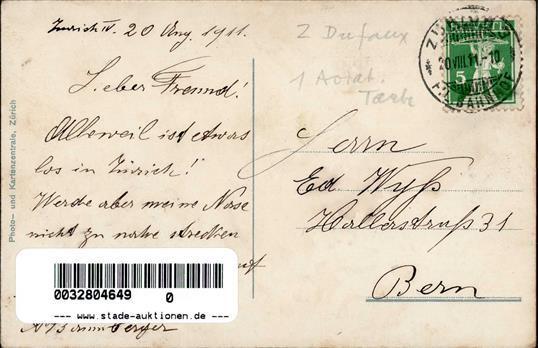 Zürich IV. 20 Aug. 1911.
Lieber Freund!
Alleweil ist etwas
los in Zürich!
Werde aber meine Nase
nicht zu nahe strecken
Photo- und Kartenzentrale, Zürich
0032804649 0
--- www.stade-auktionen.de ---
2 Dufaux
1 Aviat.
ZÜRICH
20.VIII.11.-10
BAHNHOF
5
Herrn
Ed Wyß
Hallerstraß 31
Bern